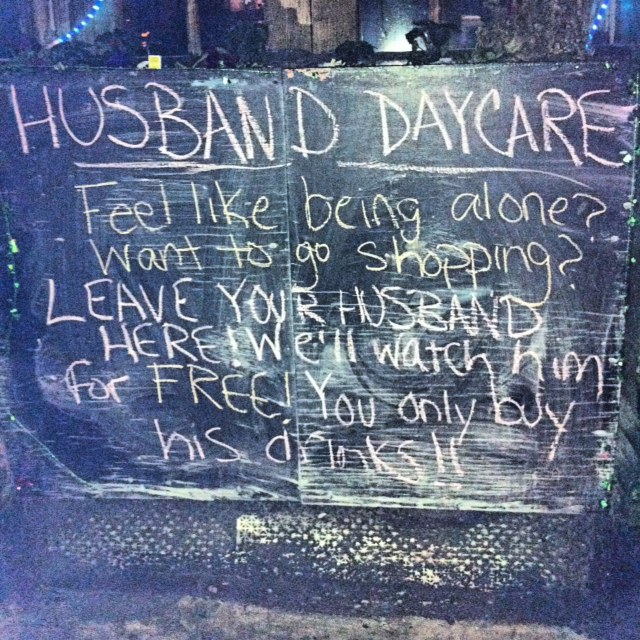 HUSBAND DAYCARE
Feel like being alone?
Want to go shopping?
LEAVE YOUR HUSBAND
HERE! We'll watch him
for FREE! You only buy
his drinks!!